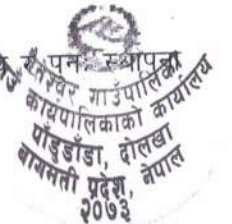 पन स्थापना
गाउँपालिका
गाउँ कार्यपालिकाको कार्यालय
पाँडुडाँडा, दोलखा
बागमती प्रदेश, नेपाल
२०७३